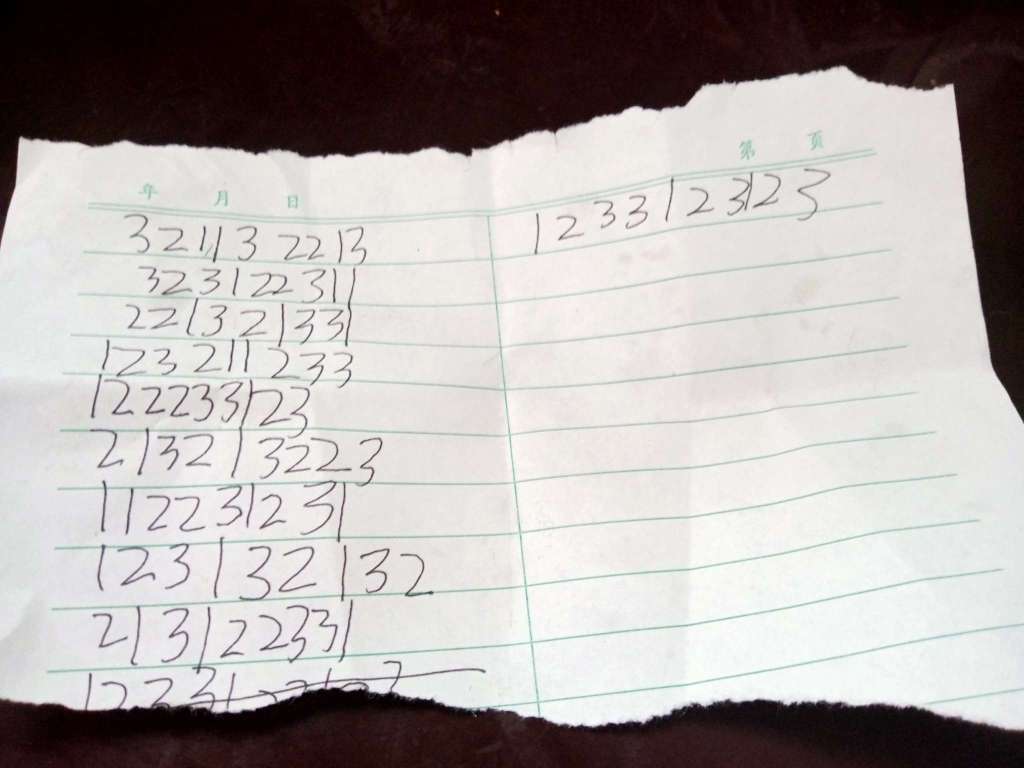 年 月 日
321132213
323122311
221321333
123211233
122233123
213213223
112231231
123132132
213122331
第 页
1233123123